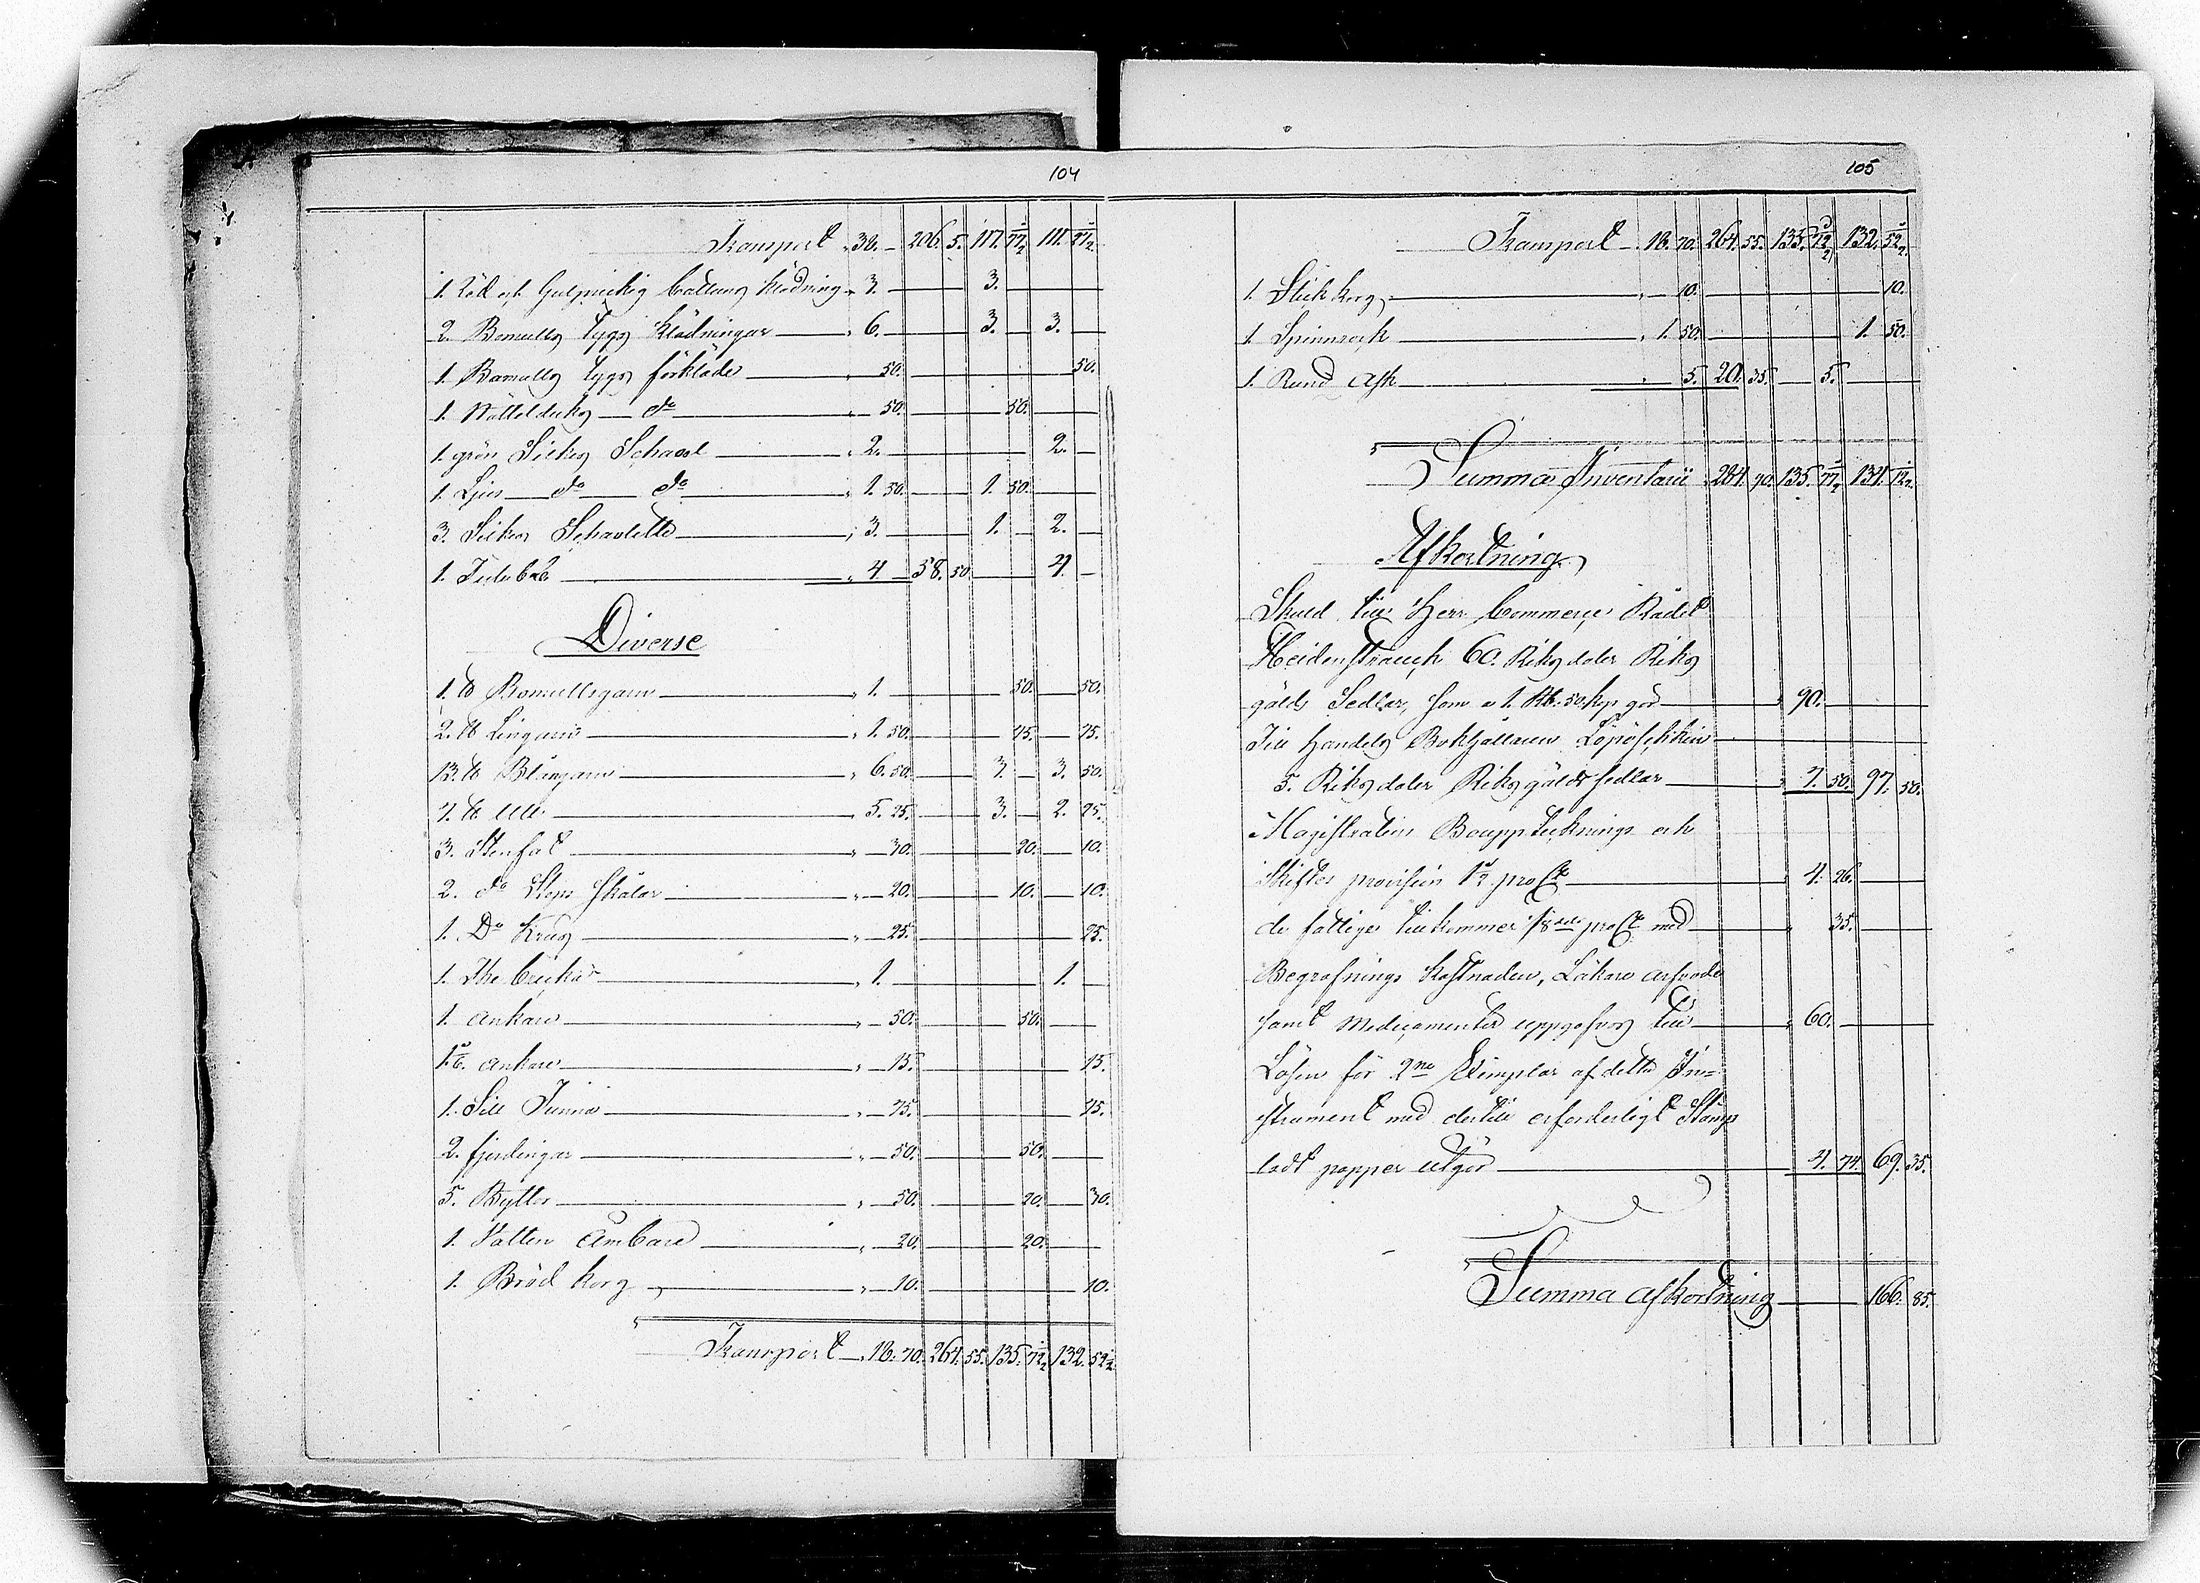 104
Transport 38. — 206. 5. 117. 77½ 111. 27½
1. Röd och Gulprickig Cattuns klädning 3. 3.
2. Bomulls tygs Klädningar 6. 3. — 3. —
1. Bomulls tygs förkläde — 50. 50.
1. Nätteldicks do — 50. 50.
1. grön Silkes Schavl 2. 2. —
1. Ljus do do 1. 50. 1. 50.
3. Silkes Schaletter 3. 1. — 2. —
1. 4 58. 50 4. —
Diverse
1. ℔ Bomullsgarn 1. 50. 50.
2. ℔ Lingarn 1. 50. 75. 75.
13. ℔ Blångarn 6. 50. 3. — 3. 50.
7. ℔ Ull 5. 25. 3. — 2. 25.
3. Stenfat — 30. 20. 10.
2. do Skålar — 20. 10. 10.
1. Do Krus — 25. 25.
1. The bricka 1. 1. —
1. ankare — 50. 50.
ankare — 15. 15.
1. Sill Tunna — 75. 75.
2. fjerdingar — 50. 50.
5. Byttor — 50. 20. 30.
1. Vatten Ämbare — 20. 20.
1. Bröd korg — 10. 10.
Transport 18. 70. 264. 55. 135. 72½ 132. 52½
105
Transport 18. 70. 264. 55. 135. 72½ 132. 52½
1. Stick korg — 10. 10.
1. Spinnrock 1. 50. 1. 50.
1. Rund Ask 5. 20. 35. — 5.
Summa Inventarii 284. 90. 135. 77½ 134. 12½
Afkortning
Skuld till Herr Commerce Rådet
Heidenstrauch 60. Riksdaler Riks
gälds Sedlar, som a 1. Rb. 50. kop gör 90. —
Till Handels Bokhållaren Löpöschkin
5. Riksdaler Riksgälds sedlar 7. 50. 97. 50.
Magistratens Beuppteknings och
Skiftes provision 1½ pro Ct 4. 26.
de fattiga tillkommer 1/8 del pro Ct med 35.
Begrafnings kostnaden, Läkare arfvode
samt Medicamenter uppgafvos till 60. —
Lösen för 2ne Exemplar af detta In=
strument med dertill erforderligt Stämp
ladt papper utgör 4. 74. 69. 35.
Summa afkortning 166. 85.